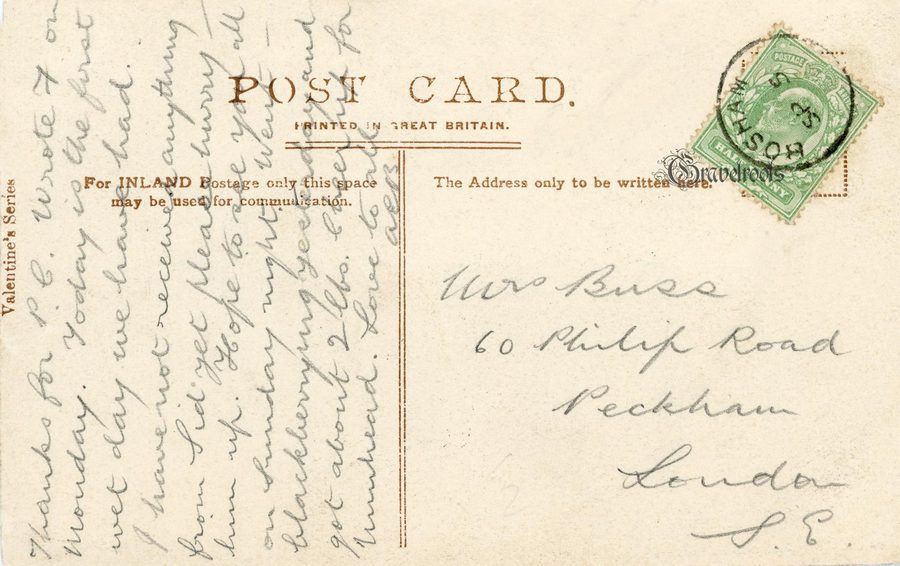 POST CARD.
PRINTED IN GREAT BRITAIN.
For INLAND Postage only this space
may be used for communication.
The Address only to be written here.
Valentine's Series
Thanks for P.C. Wrote 7 on
Monday. Today is the first
wet day we have had.
I have not received anything
from Sid yet please hurry
him up. Hope to see you all
on Sunday night. Went
blackberrying yesterday and
got about 2 lbs. for
Nunhead. Love to all
Mrs Buss
60 Philip Road
Peckham
London
S.E.
POSTAGE
HALFPENNY
BOSHAM
Gravelroots